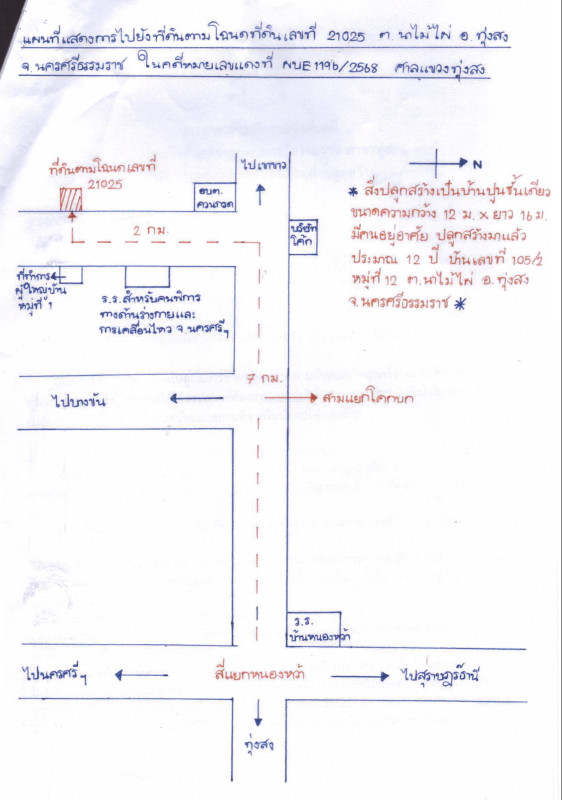 แผนที่แสดงการไปยังที่ดินตามโฉนดที่ดินเลขที่ 21025 ต.นาไม้ไผ่ อ.ทุ่งสง
จ.นครศรีธรรมราช ในคดีหมายเลขแดงที่ ผบE1196/2568 ศาลแขวงทุ่งสง
ไปเขาขาว
N
ที่ดินตามโฉนดเลขที่
21025
อบต.
ควนกรด
* สิ่งปลูกสร้างเป็นบ้านปูนชั้นเดียว
ขนาดความกว้าง 12 ม. x ยาว 16 ม.
มีคนอยู่อาศัย ปลูกสร้างมาแล้ว
ประมาณ 12 ปี บ้านเลขที่ 105/2
หมู่ที่ 12 ต.นาไม้ไผ่ อ.ทุ่งสง
จ.นครศรีธรรมราช *
บริษัท
โค้ก
2 กม.
ที่ทำการ
ผู้ใหญ่บ้าน
หมู่ที่ 1
ร.ร.สำหรับคนพิการ
ทางด้านร่างกายและ
การเคลื่อนไหว จ.นครศรีฯ
7 กม.
ไปบางขัน
สามแยกโคกบก
ร.ร.
บ้านหนองหว้า
ไปนครศรีฯ
สี่แยกหนองหว้า
ไปสุราษฎร์ธานี
ทุ่งสง